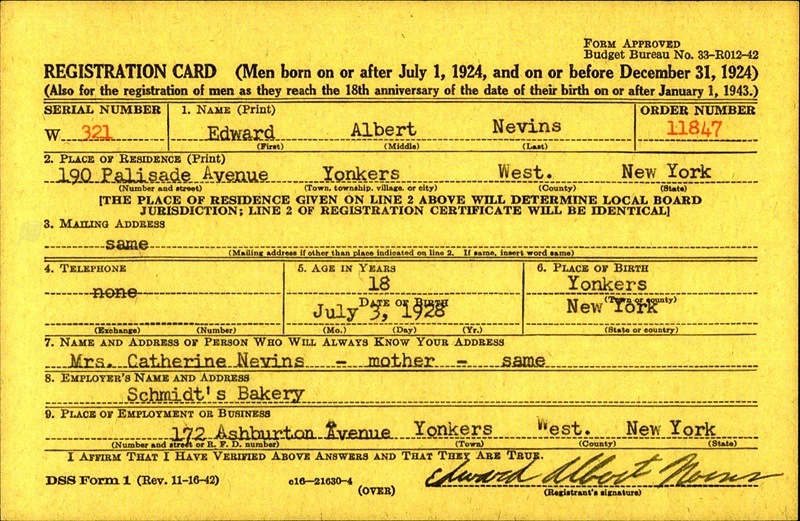 FORM APPROVED
Budget Bureau No. 33-R012-42
REGISTRATION CARD (Men born on or after July 1, 1924, and on or before December 31, 1924)
(Also for the registration of men as they reach the 18th anniversary of the date of their birth on or after January 1, 1943.)
SERIAL NUMBER 1. NAME (Print) ORDER NUMBER
W 321 Edward Albert Nevins 11847
(First) (Middle) (Last)
2. PLACE OF RESIDENCE (Print)
190 Palisade Avenue Yonkers West. New York
(Number and street) (Town, township, village, or city) (County) (State)
[THE PLACE OF RESIDENCE GIVEN ON LINE 2 ABOVE WILL DETERMINE LOCAL BOARD
JURISDICTION; LINE 2 OF REGISTRATION CERTIFICATE WILL BE IDENTICAL]
3. MAILING ADDRESS
same
(Mailing address if other than place indicated on line 2. If same, insert word same)
4. TELEPHONE 5. AGE IN YEARS 6. PLACE OF BIRTH
none 18 Yonkers
DATE OF BIRTH (Town or county)
July 3, 1928 New York
(Exchange) (Number) (Mo.) (Day) (Yr.) (State or country)
7. NAME AND ADDRESS OF PERSON WHO WILL ALWAYS KNOW YOUR ADDRESS
Mrs. Catherine Nevins - mother - same
8. EMPLOYER'S NAME AND ADDRESS
Schmidt's Bakery
9. PLACE OF EMPLOYMENT OR BUSINESS
172 Ashburton Avenue Yonkers West. New York
(Number and street or R. F. D. number) (Town) (County) (State)
I AFFIRM THAT I HAVE VERIFIED ABOVE ANSWERS AND THAT THEY ARE TRUE.
DSS Form 1 (Rev. 11-16-42) c16-21630-4 Edward Albert Nevins
(OVER) (Registrant's signature)